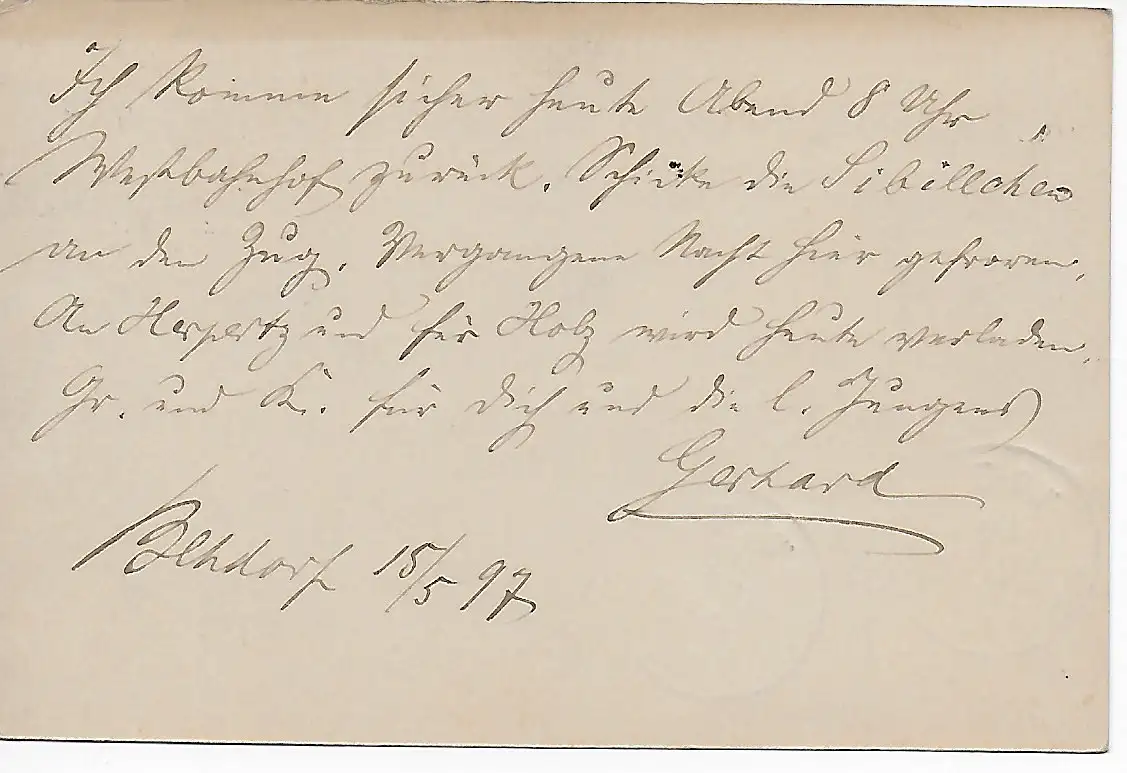 Ich komme sicher heute Abend 8 Uhr
Westbahnhof zurück. Schicke die Sibillchen
an den Zug. Vergangene Nacht hier gefroren.
An Herpertz und für Holz wird heute verladen.
Gr. und K. für Dich und die l. Jungens
Gerhard
15/5 97